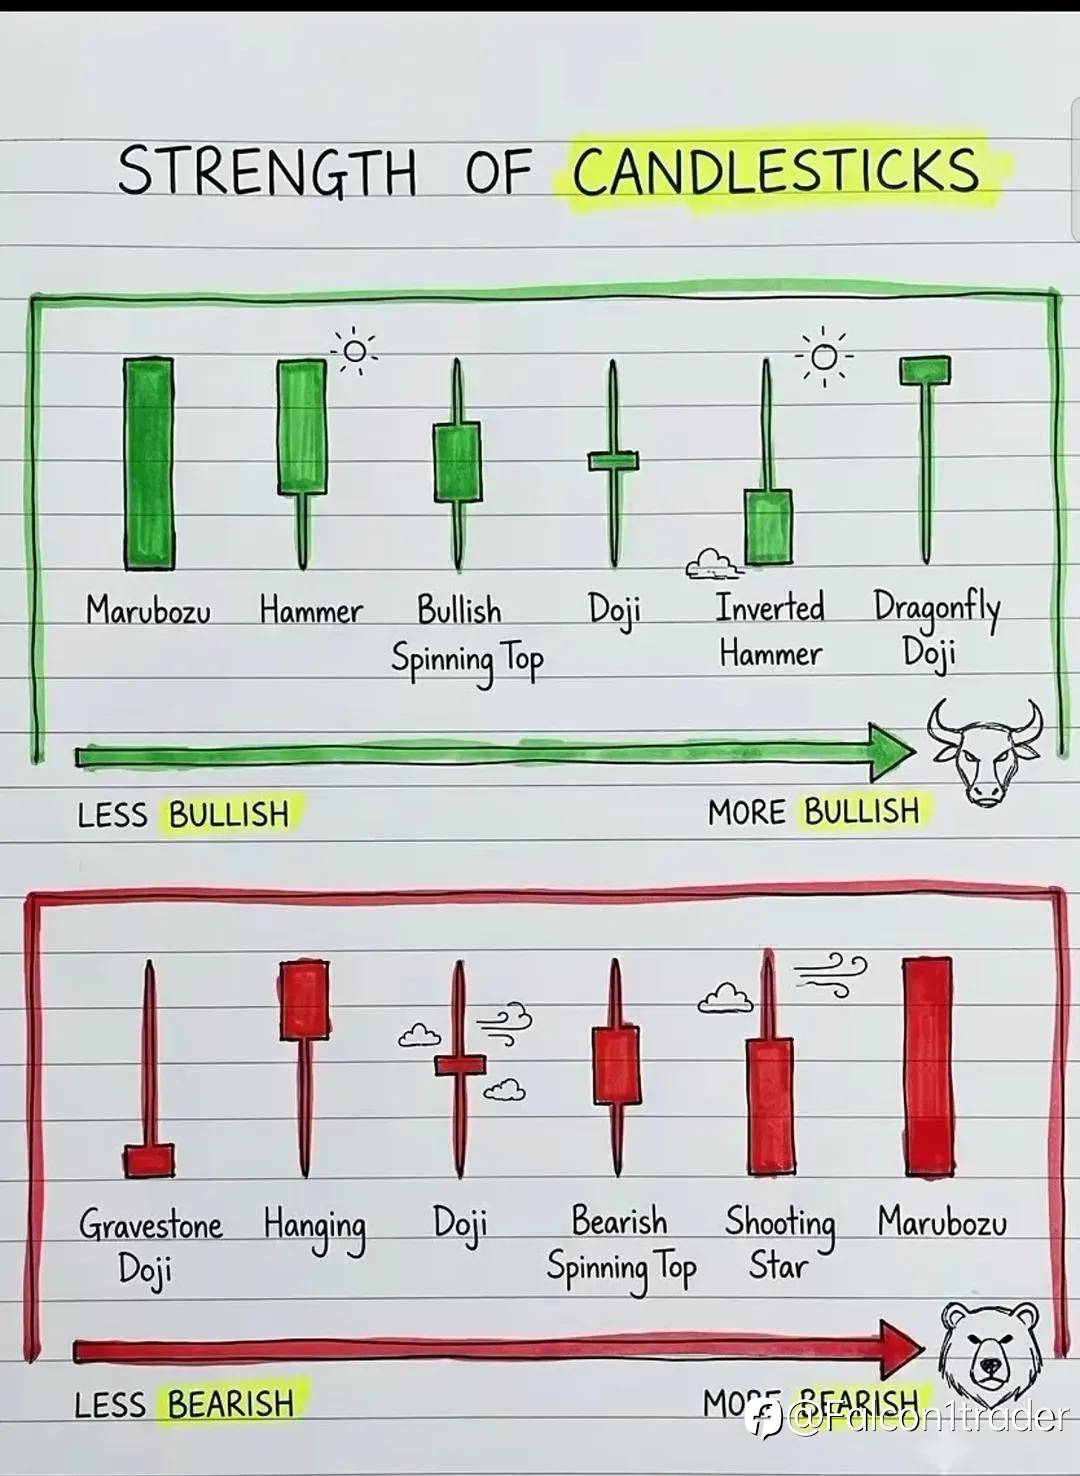 STRENGTH OF CANDLESTICKS
Marubozu Hammer Bullish Doji Inverted Dragonfly
Spinning Top Hammer Doji
LESS BULLISH MORE BULLISH
Gravestone Hanging Doji Bearish Shooting Marubozu
Doji Spinning Top Star
LESS BEARISH MORE BEARISH
@Falcon1trader